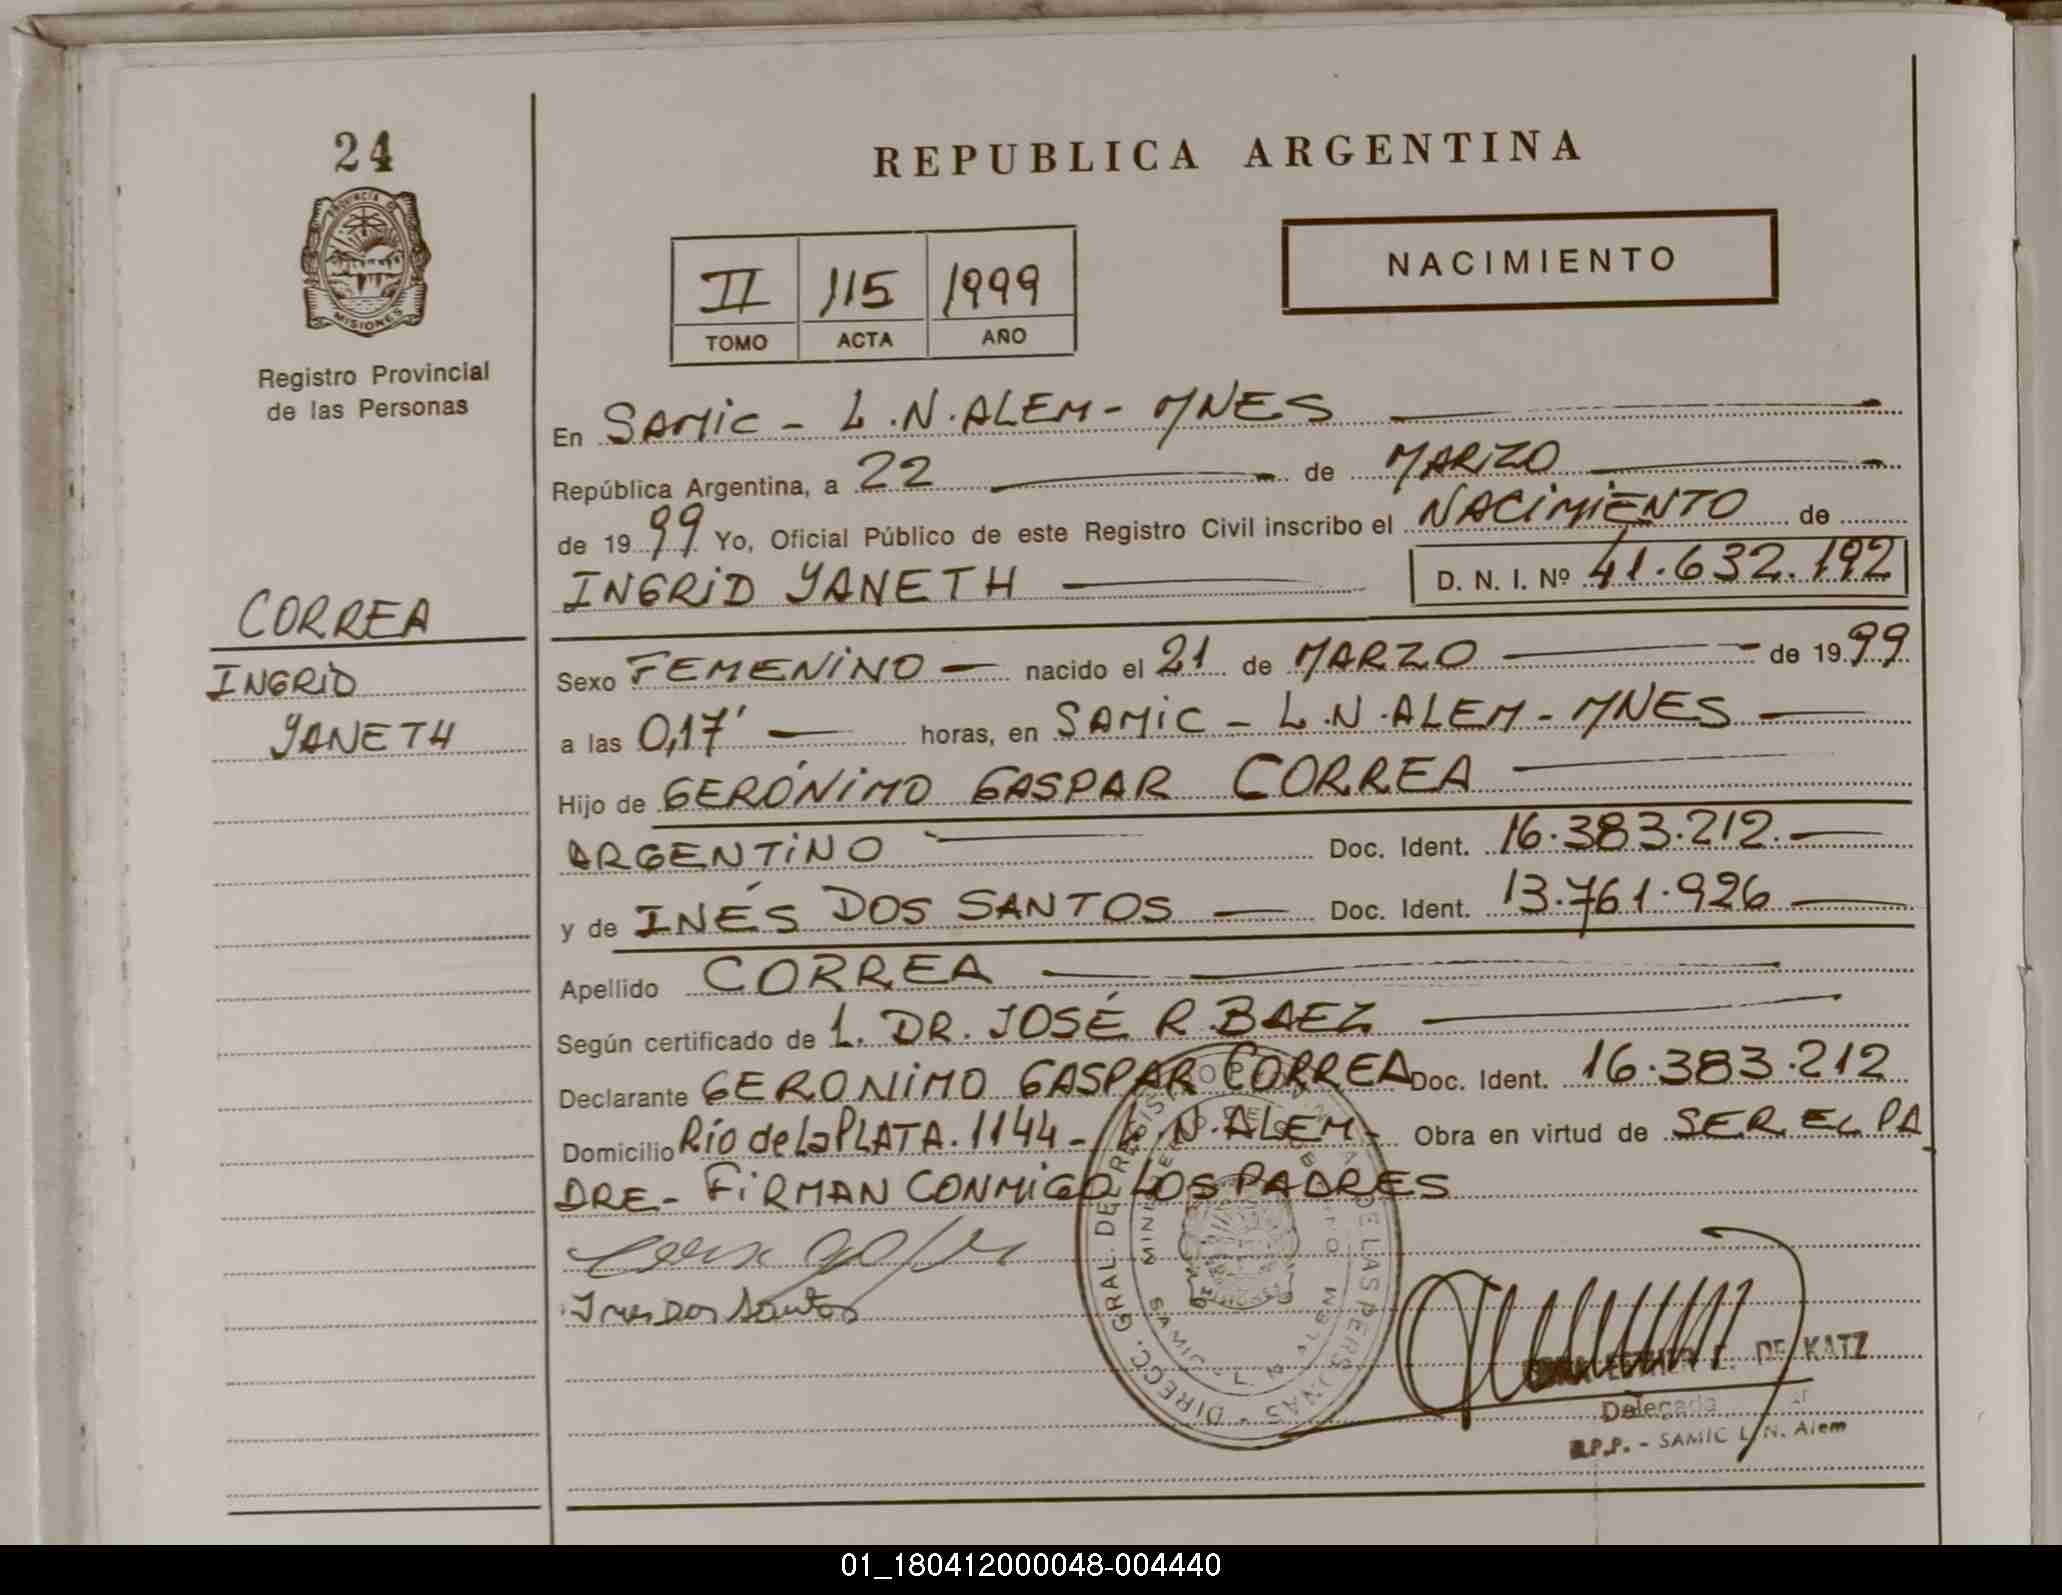 24
PROVINCIA DE
MISIONES
Registro Provincial
de las Personas
CORREA
INGRID
YANETH
REPUBLICA ARGENTINA
II 115 1999
TOMO ACTA AÑO
NACIMIENTO
En SAMIC - L.N.ALEM - MNES
República Argentina, a 22 de MARZO
de 1999 Yo, Oficial Público de este Registro Civil inscribo el NACIMIENTO de
INGRID YANETH D. N. I. Nº 41.632.192
Sexo FEMENINO nacido el 21 de MARZO de 1999
a las 0,17' horas, en SAMIC - L.N.ALEM - MNES
Hijo de GERÓNIMO GASPAR CORREA
ARGENTINO Doc. Ident. 16.383.212.
y de INÉS DOS SANTOS Doc. Ident. 13.761.926
Apellido CORREA
Según certificado de L. DR. JOSÉ R BAEZ
Declarante GERONIMO GASPAR CORREA Doc. Ident. 16.383.212
Domicilio Río de La PLATA. 1144 - L.N.ALEM - Obra en virtud de SER EL PA
DRE - FIRMAN CONMIGO LOS PADRES
Ines Dos Santos
DIRECC. GRAL. DE REGIST DE LAS PERSONAS
MINISTERIO DE GOBIERNO
SAMIC L. N. ALEM
DE KATZ
Delegada
R.P.P. - SAMIC L. N. Alem
01_180412000048-004440